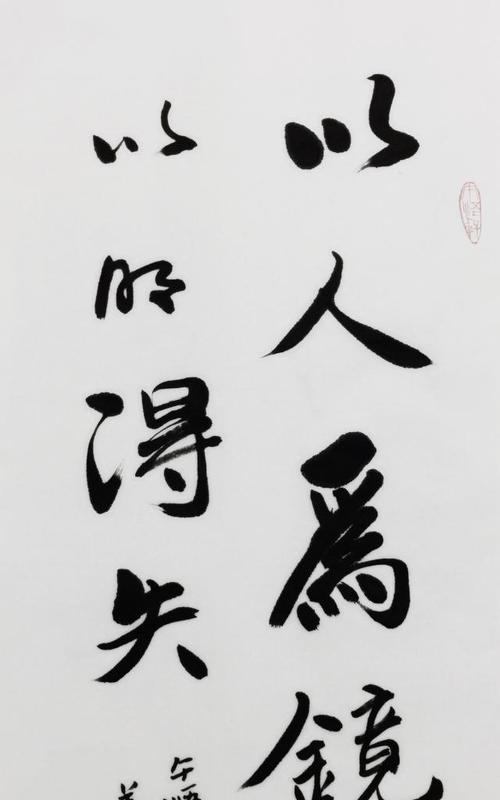 以人爲鏡
以明得失